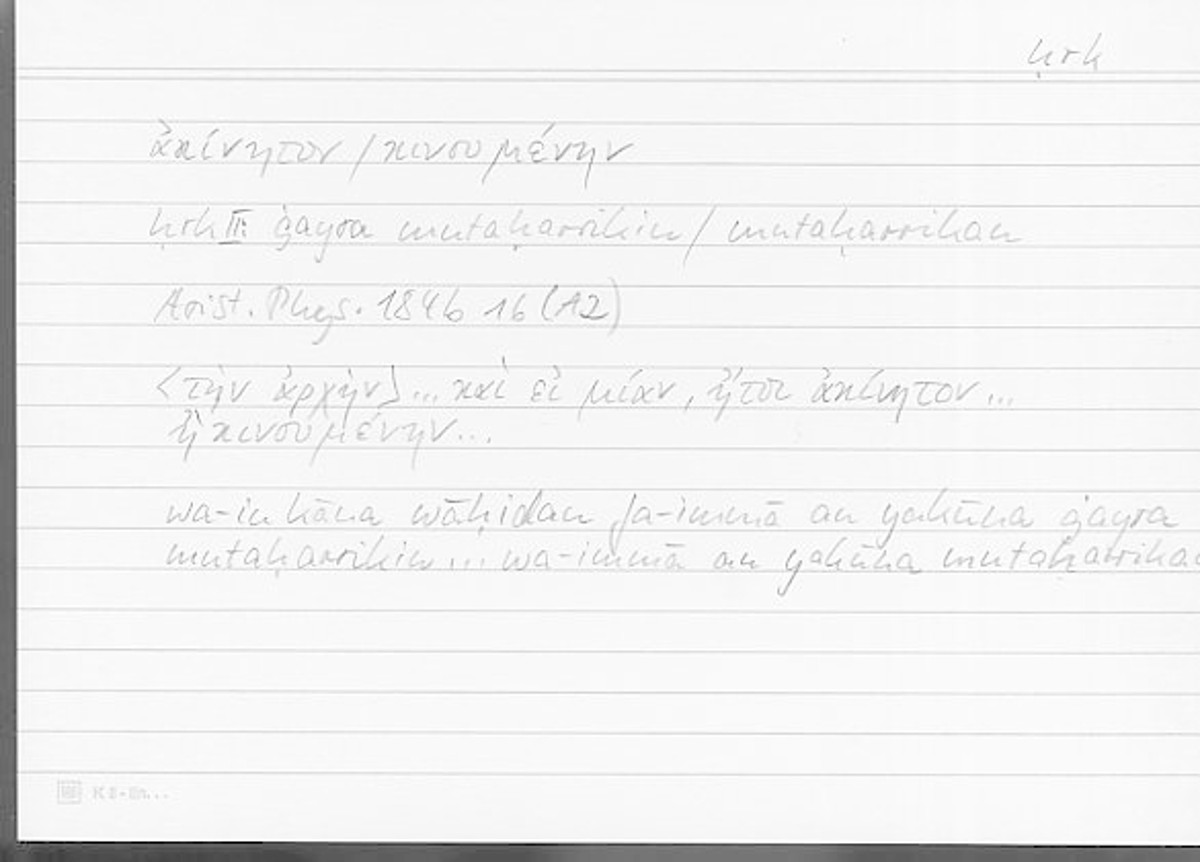 ḥrk
ἀκίνητον / κινουμένην
ḥrk II: ġayra mutaḥarrikin / mutaḥarrikan
Arist. Phys. 184b 16 (A2)
<τὴν ἀρχὴν> ... καὶ εἰ μίαν, ἤτοι ἀκίνητον ...
ἢ κινουμένην ...
wa-in kāna wāḥidan fa-immā an yakūna ġayra
mutaḥarrikin ... wa-immā an yakūna mutaḥarrikan